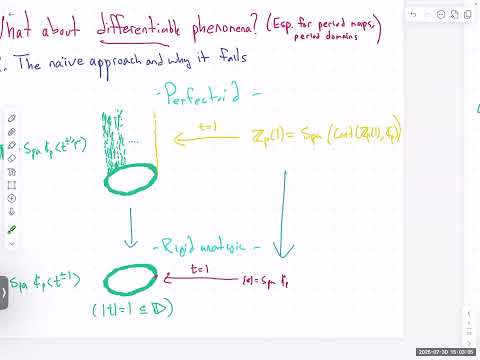 What about differentiable phenomena? (Esp. for period maps, period domains)
The naive approach and why it fails
- Perfectoid -
Spa ℂp⟨t^{±1/p^∞}⟩
t=1
ℤp(1) = Spa (Cont(ℤp(1), ℂp))
- Rigid analytic -
Spa ℂp⟨t^{±1}⟩
t=1
= Spa ℂp
(|t|=1 ⊆ 𝔻)
2025-07-30 15:03:05